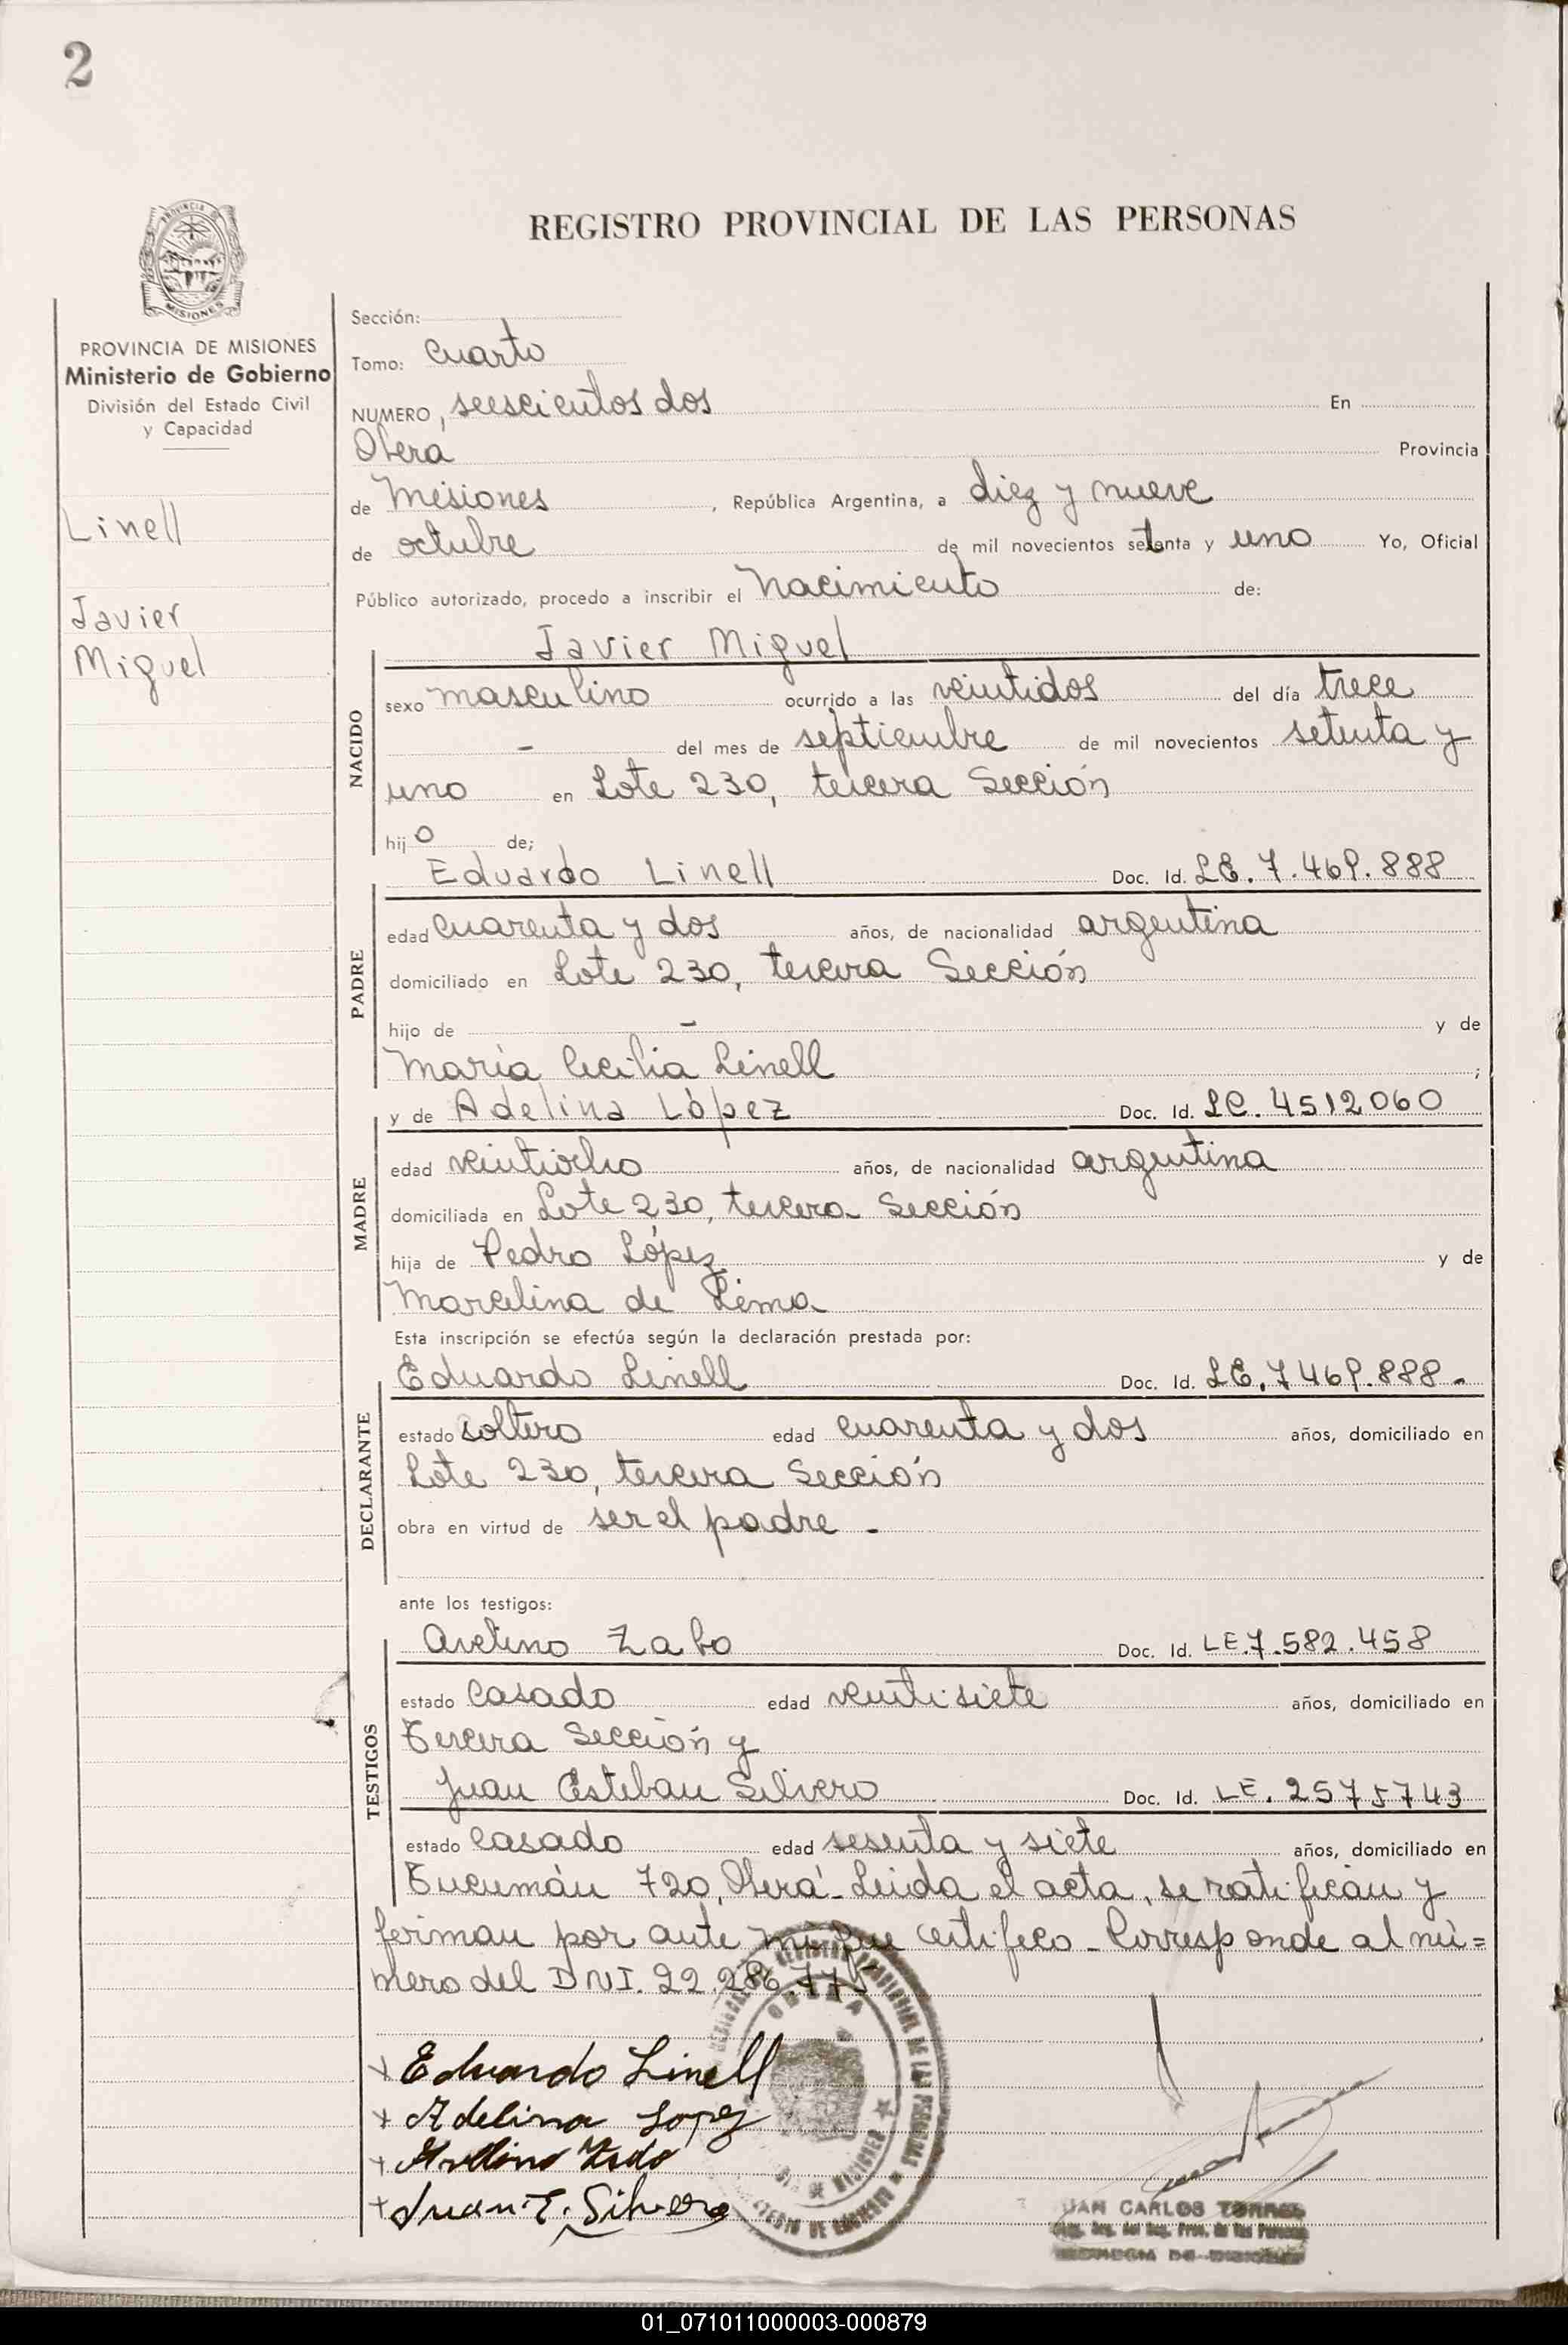 2
REGISTRO PROVINCIAL DE LAS PERSONAS
PROVINCIA DE MISIONES
Ministerio de Gobierno
División del Estado Civil
y Capacidad
Linell
Javier
Miguel
Sección:
Tomo: Cuarto
NUMERO, seiscientos dos En
Oberá Provincia
de Misiones, República Argentina, a diez y nueve
de octubre de mil novecientos setenta y uno Yo, Oficial
Público autorizado, procedo a inscribir el Nacimiento de:
Javier Miguel
NACIDO
sexo masculino ocurrido a las veintidos del día trece
- del mes de septiembre de mil novecientos setenta y
uno en Lote 230, tercera Sección
hijo de;
Eduardo Linell Doc. Id. LE. 7.469.888
PADRE
edad cuarenta y dos años, de nacionalidad argentina
domiciliado en Lote 230, tercera Sección
hijo de - y de
María Cecilia Linell ;
y de Adelina López Doc. Id. LC. 4512060
MADRE
edad veintiocho años, de nacionalidad argentina
domiciliada en Lote 230, tercera Sección
hija de Pedro López y de
Marcelina de Lima
Esta inscripción se efectúa según la declaración prestada por:
Eduardo Linell Doc. Id. LE. 7469.888.-
DECLARANTE
estado soltero edad cuarenta y dos años, domiciliado en
Lote 230, tercera Sección
obra en virtud de ser el padre -
ante los testigos:
Avelino Zabo Doc. Id. LE.7.582.458
TESTIGOS
estado casado edad veintisiete años, domiciliado en
Tercera Sección y
Juan Esteban Silvero Doc. Id. LE. 2575743
estado casado edad sesenta y siete años, domiciliado en
Tucumán 720, Oberá - Leida el acta, se ratifican y
firman por ante mí que certifico - Corresponde al nú=
mero del DNI. 22.286.775
+ Eduardo Linell
+ Adelina Lopez
+ Juan E. Silvero
OBERA
JUAN CARLOS TORRES
01_071011000003-000879